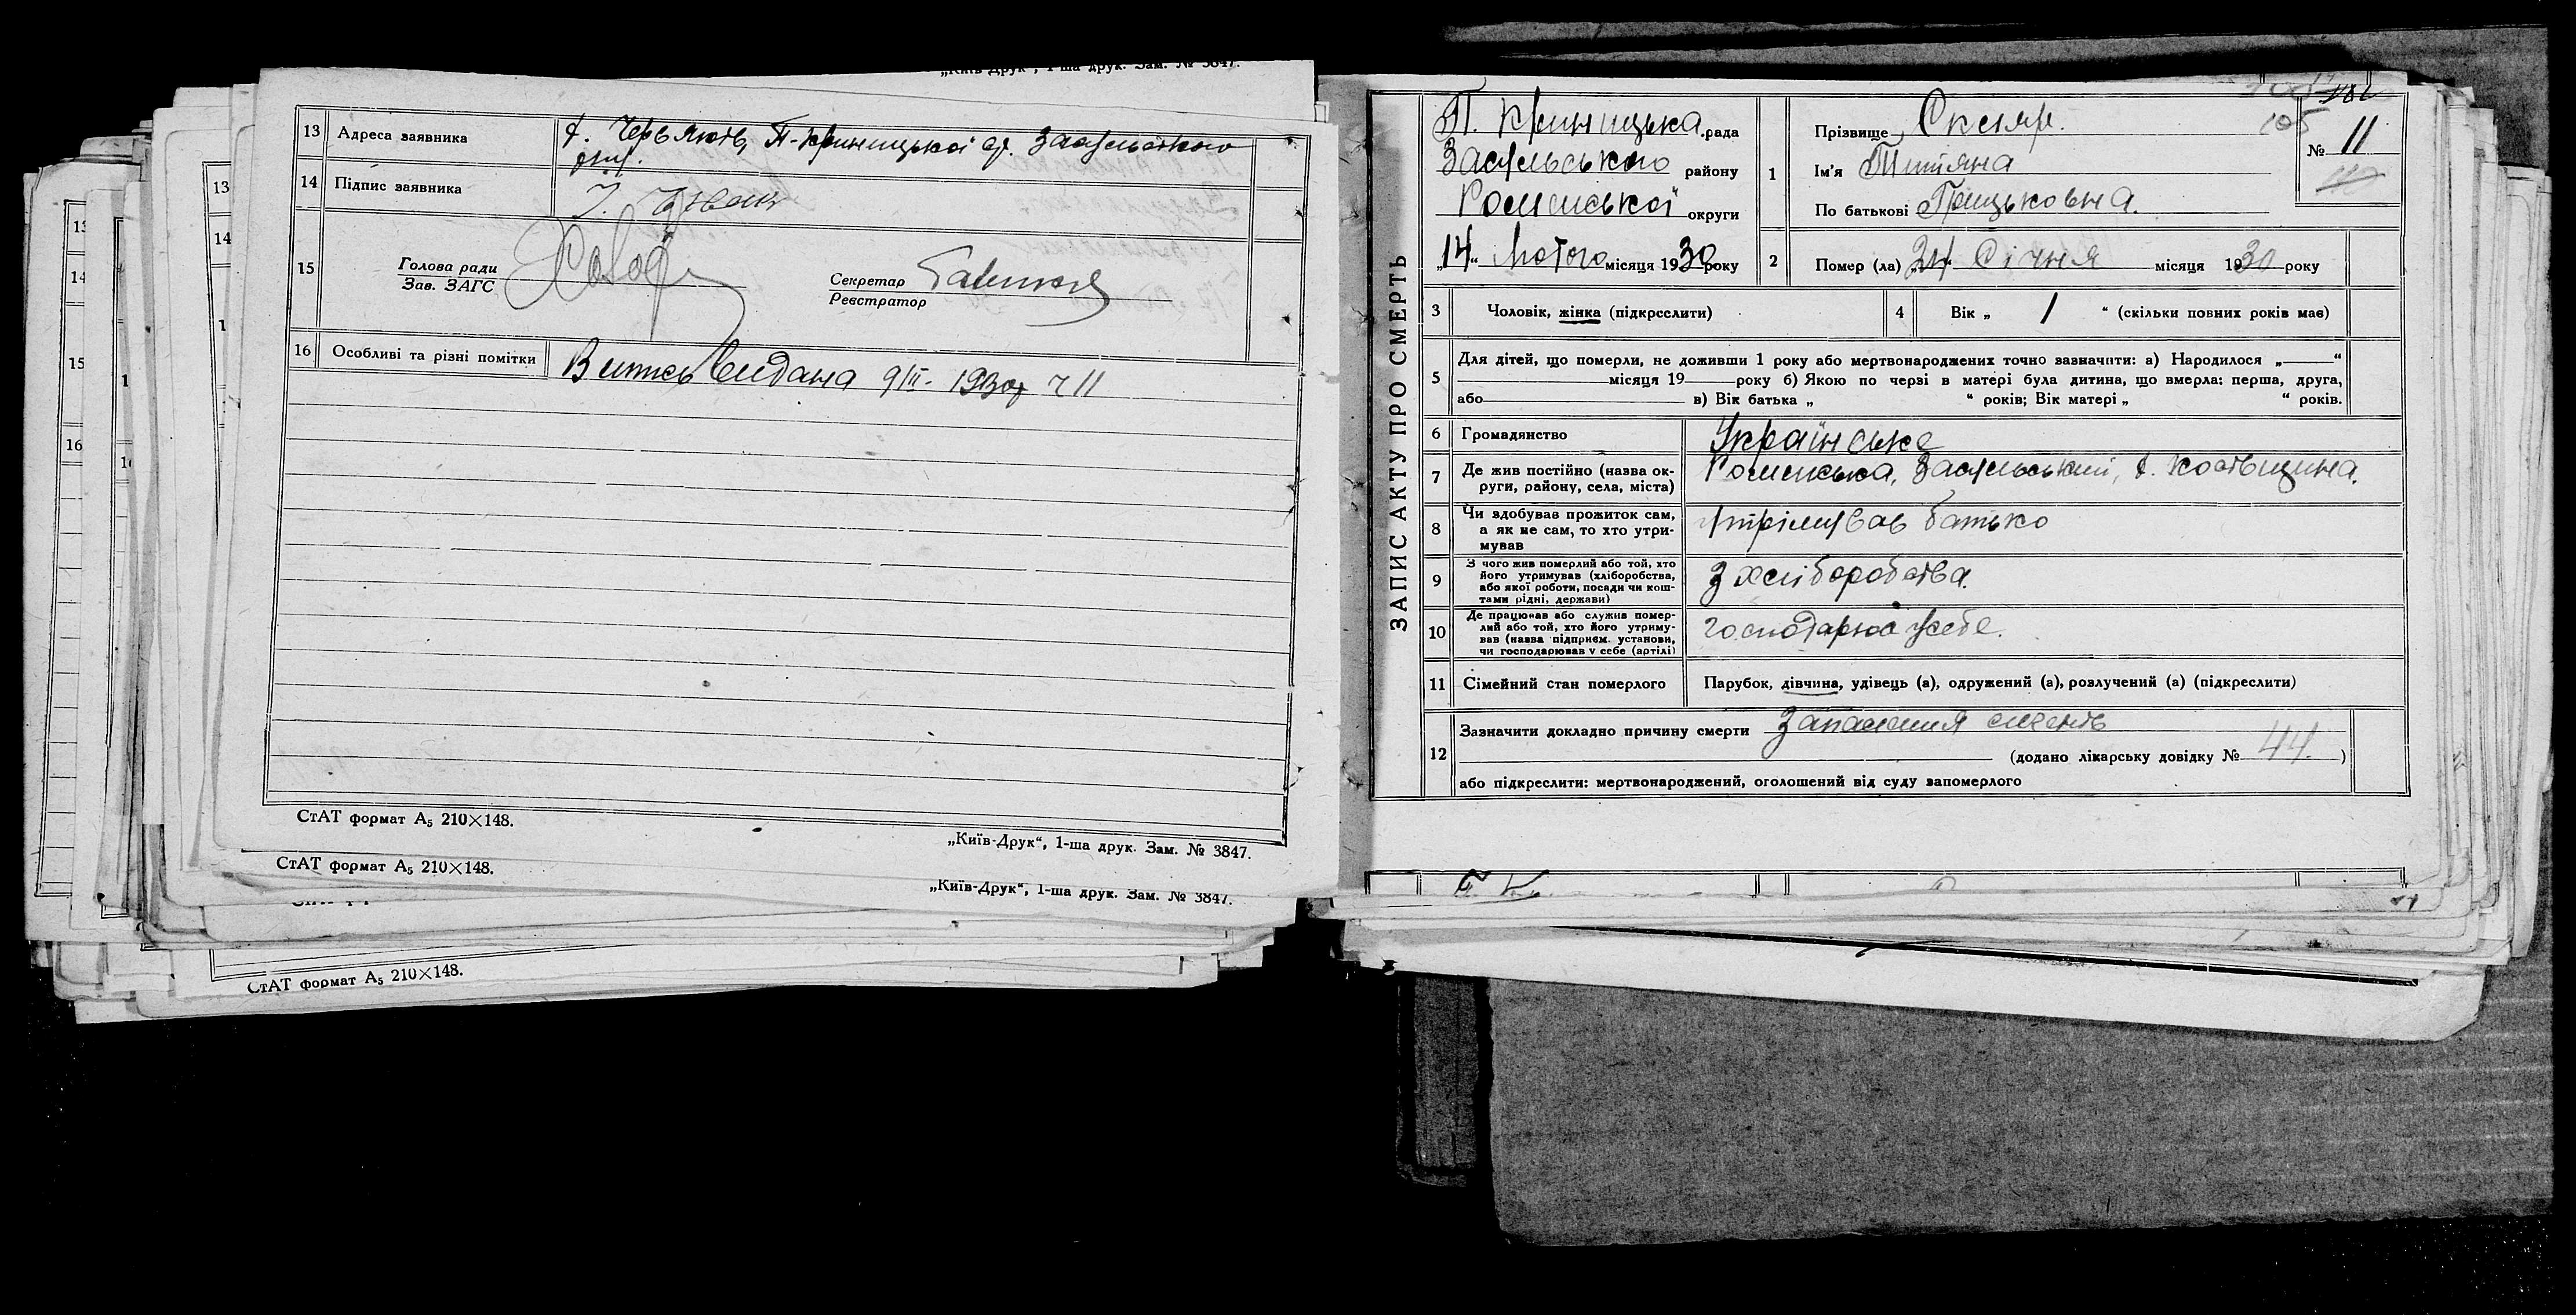 „Київ-Друк“, 1-ша друк. Зам. № 3847.
13 Адреса заявника П-Криницької
14 Підпис заявника
15 Голова ради
Зав. ЗАГС
Секретар
Реєстратор
16 Особливі та різні помітки Витись видана 9/II- 1930р ч 11
СтАТ формат А₅ 210×148.
„Київ-Друк“, 1-ша друк. Зам. № 3847.
СтАТ формат А₅ 210×148.
„Київ-Друк“, 1-ша друк. Зам. № 3847.
СтАТ формат А₅ 210×148.
ЗАПИС АКТУ ПРО СМЕРТЬ
П. Криницька рада
Засульського району
Роменської округи
„14“ Лютого місяця 1930 року
105
№ 11
1 Прізвище Скляр.
Ім'я Титяна
По батькові Грицьковна.
2 Помер (ла) „24“ Січня місяця 1930 року
3 Чоловік, жінка (підкреслити)
4 Вік „ 1 “ (скільки повних років мав)
5 Для дітей, що померли, не доживши 1 року або мертвонароджених точно зазначити: а) Народилося „ “
місяця 19 року б) Якою по черзі в матері була дитина, що вмерла: перша, друга,
або в) Вік батька „ “ років; Вік матері „ “ років.
6 Громадянство Українське
7 Де жив постійно (назва ок-
руги, району, села, міста) Роменська, Засульський,
8 Чи здобував прожиток сам,
а як не сам, то хто утри-
мував утрімував батько
9 З чого жив померлий або той, хто
його утримував (хліборобства,
або якої роботи, посади чи кош-
тами рідні, держави) З хліборобства.
10 Де працював або служив помер-
лий або той, хто його утриму-
вав (назва підприєм. установи,
чи господарював у себе (артілі) господарює у себе.
11 Сімейний стан померлого Парубок, дівчина, удівець (а), одружений (а), розлучений (а) (підкреслити)
12 Зазначити докладно причину смерти Запалення легень
(додано лікарську довідку № 44. )
або підкреслити: мертвонароджений, оголошений від суду запомерлого